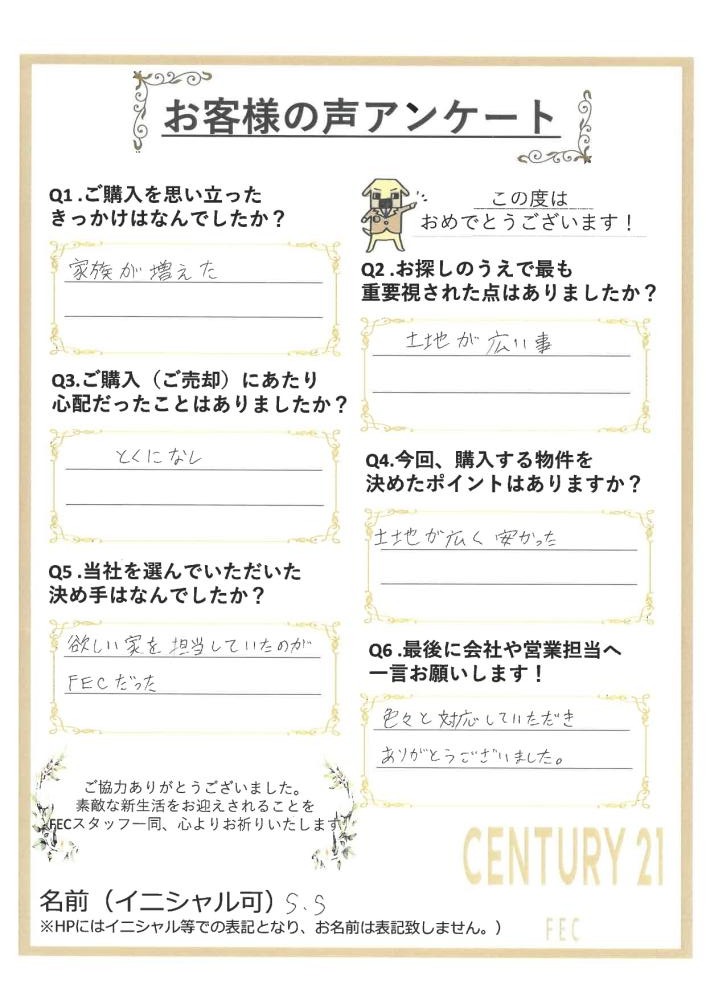 お客様の声アンケート
Q1.ご購入を思い立った
きっかけはなんでしたか？
家族が増えた
この度は
おめでとうございます！
Q2.お探しのうえで最も
重要視された点はありましたか？
土地が広い事
Q3.ご購入（ご売却）にあたり
心配だったことはありましたか？
とくになし
Q4.今回、購入する物件を
決めたポイントはありますか？
土地が広く安かった
Q5.当社を選んでいただいた
決め手はなんでしたか？
欲しい家を担当していたのが
FECだった
Q6.最後に会社や営業担当へ
一言お願いします！
色々と対応していただき
ありがとうございました。
ご協力ありがとうございました。
素敵な新生活をお迎えされることを
FECスタッフ一同、心よりお祈りいたします
CENTURY 21
FEC
名前（イニシャル可）S.S
※HPにはイニシャル等での表記となり、お名前は表記致しません。）